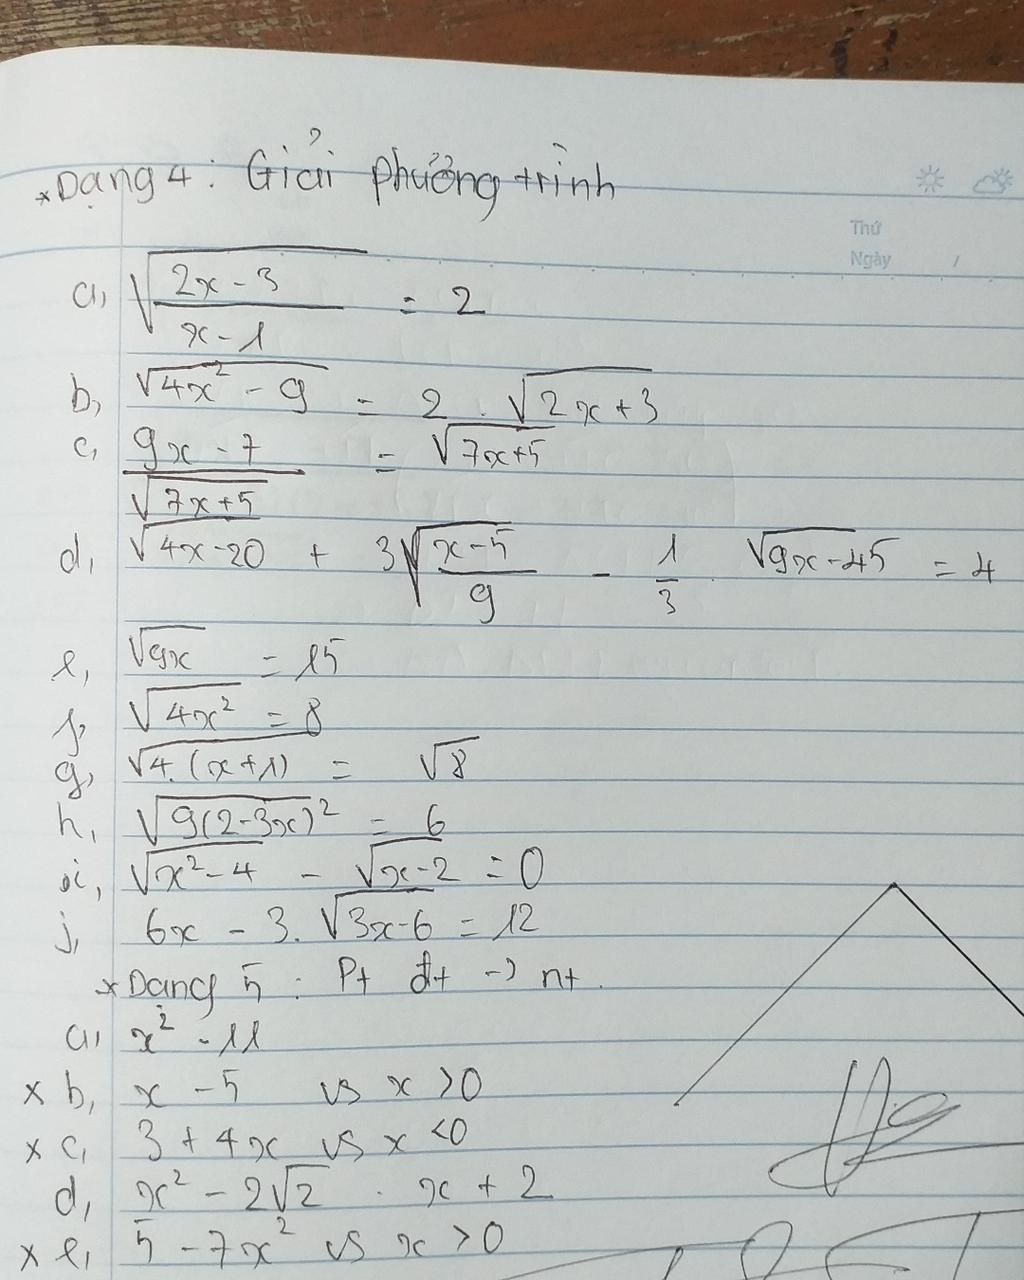 * Dạng 4 : Giải phương trình
Thứ
Ngày /
a, √((2x - 3)/(x - 1)) = 2
b, √(4x² - 9) = 2 . √(2x + 3)
c, (9x - 7)/√(7x+5) = √(7x+5)
d, √(4x-20) + 3√((x-5)/9) - 1/3 . √(9x-45) = 4
e, √(9x) = 15
f, √(4x²) = 8
g, √(4.(x+1)) = √8
h, √(9(2-3x)²) = 6
i, √(x²-4) - √(x-2) = 0
j, 6x - 3.√(3x-6) = 12
* Dạng 5 : Pt đt -> nt .
a, x² - 11
x b, x - 5 vs x > 0
x c, 3 + 4x vs x < 0
d, x² - 2√2 . x + 2
x e, 5 - 7x² vs x > 0